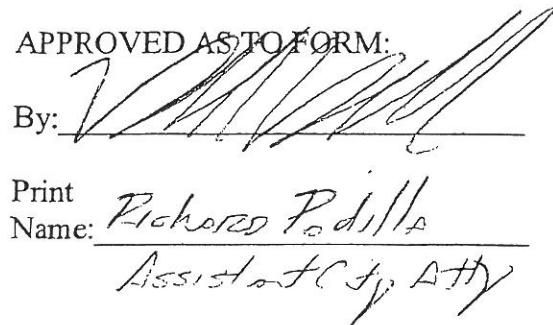 APPROVED AS TO FORM:
By:
Print
Name: Richard Padilla
Assistant City Atty